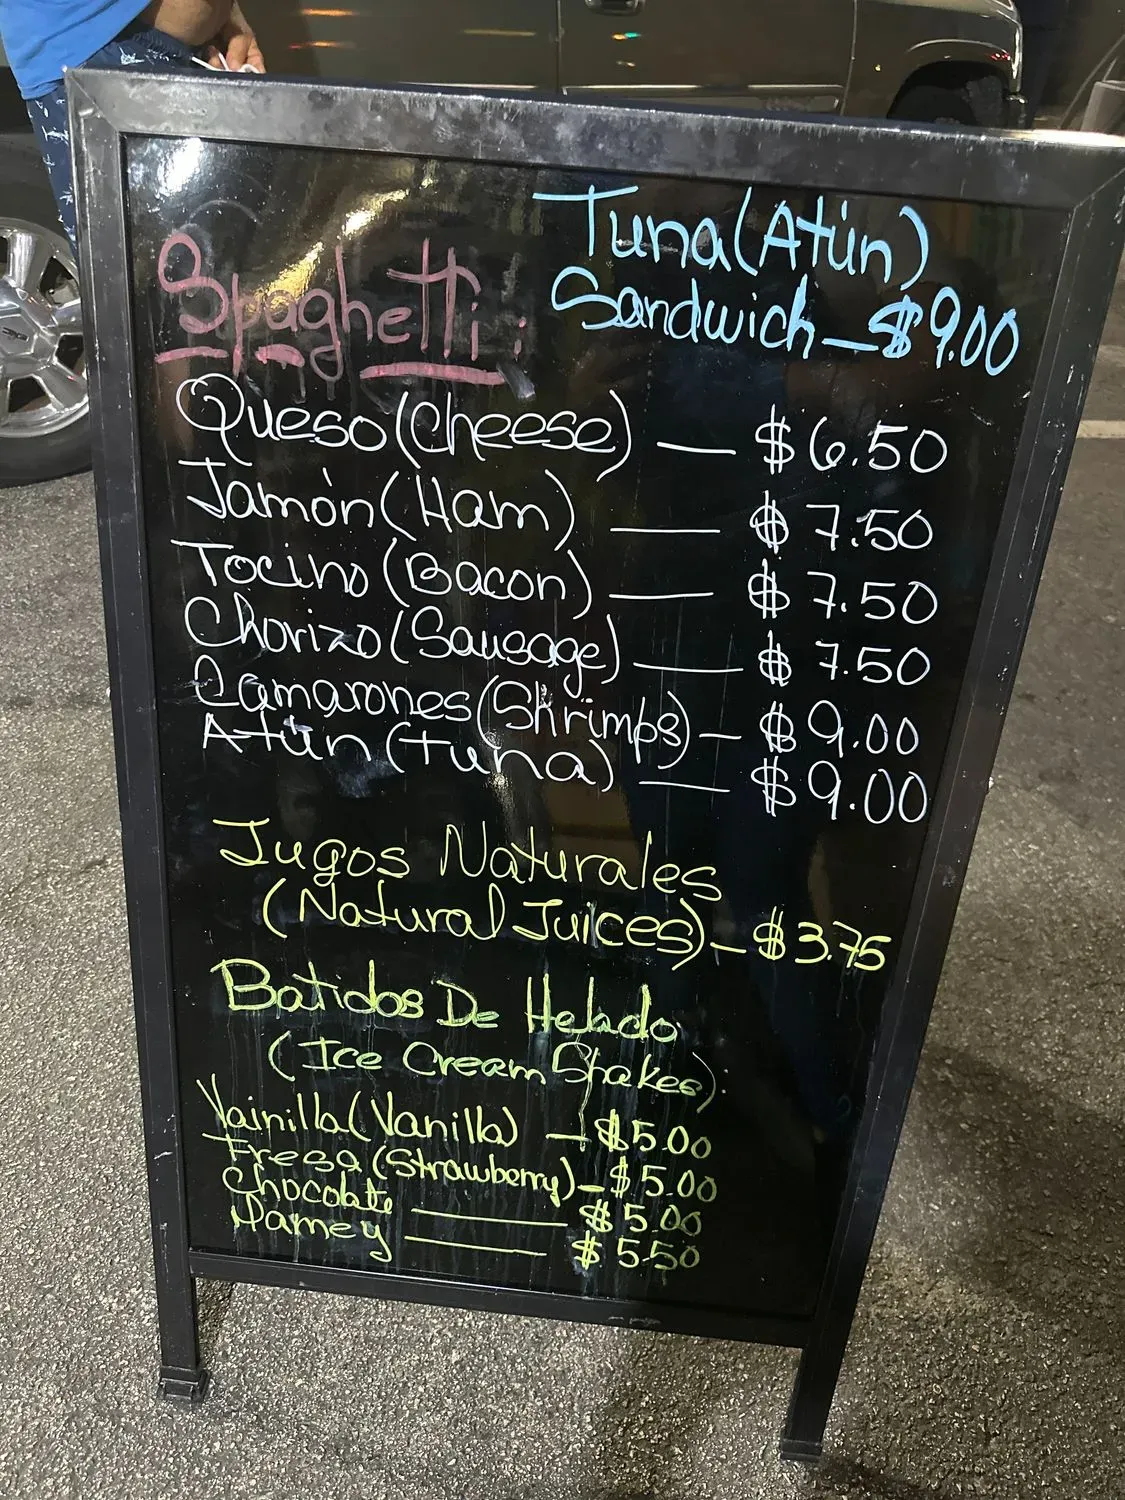 Tuna(Atún)
Sandwich - $9.00
Spaghetti:
Queso (Cheese) - $6.50
Jamón (Ham) - $7.50
Tocino (Bacon) - $7.50
Chorizo (Sausage) - $7.50
Camarones (Shrimps) - $9.00
Atún (tuna) - $9.00
Jugos Naturales
(Natural Juices) - $3.75
Batidos De Helado
(Ice Cream Shakes):
Vainilla (Vanilla) - $5.00
Fresa (Strawberry) - $5.00
Chocolate - $5.00
Mamey - $5.50